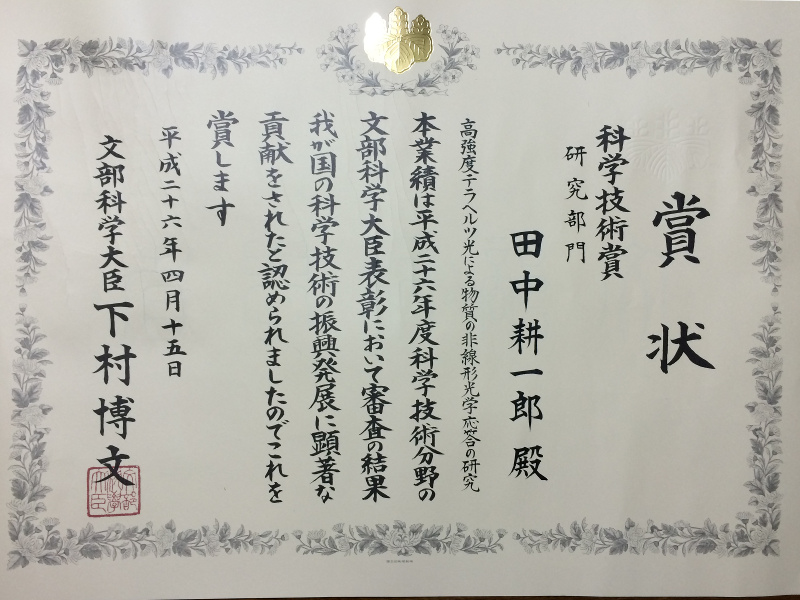 賞状
科学技術賞
研究部門
田中耕一郎 殿
高強度テラヘルツ光による物質の非線形光学応答の研究
本業績は平成二十六年度科学技術分野の
文部科学大臣表彰において審査の結果
我が国の科学技術の振興発展に顕著な
貢献をされたと認められましたのでこれを
賞します
平成二十六年四月十五日
文部科学大臣 下村博文